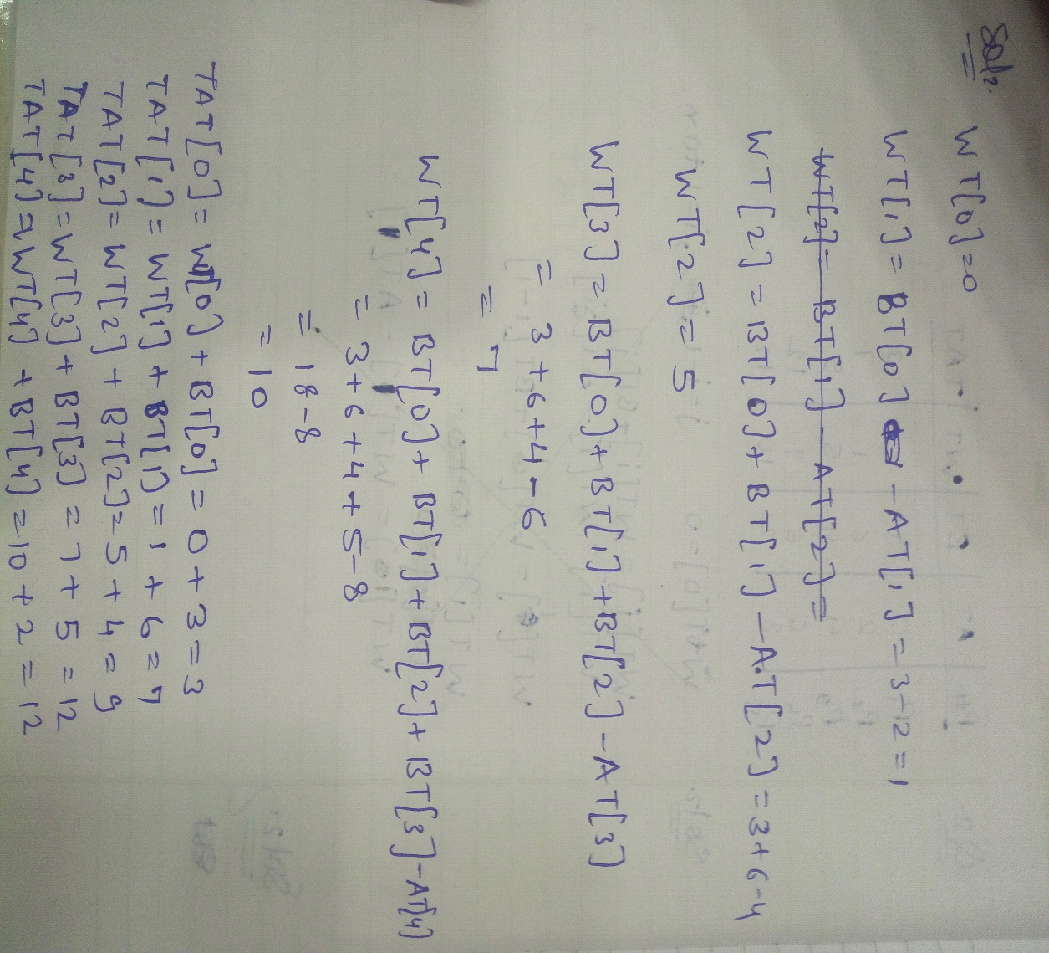 Soln.
WT[0]=0
WT[1] = BT[0] - AT[1] = 3-12 = 1
WT[2] = BT[1] - AT[2] =
WT[2] = BT[0] + BT[1] - AT[2] = 3+6-4
WT[2] = 5
WT[3] = BT[0] + BT[1] + BT[2] - AT[3]
= 3+6+4-6
= 7
WT[4] = BT[0] + BT[1] + BT[2] + BT[3] - AT[4]
= 3+6+4+5-8
= 18-8
= 10
TAT[0] = WT[0] + BT[0] = 0+3=3
TAT[1] = WT[1] + BT[1] = 1+6=7
TAT[2] = WT[2] + BT[2] = 5+4=9
TAT[3] = WT[3] + BT[3] = 7+5=12
TAT[4] = WT[4] + BT[4] = 10+2=12